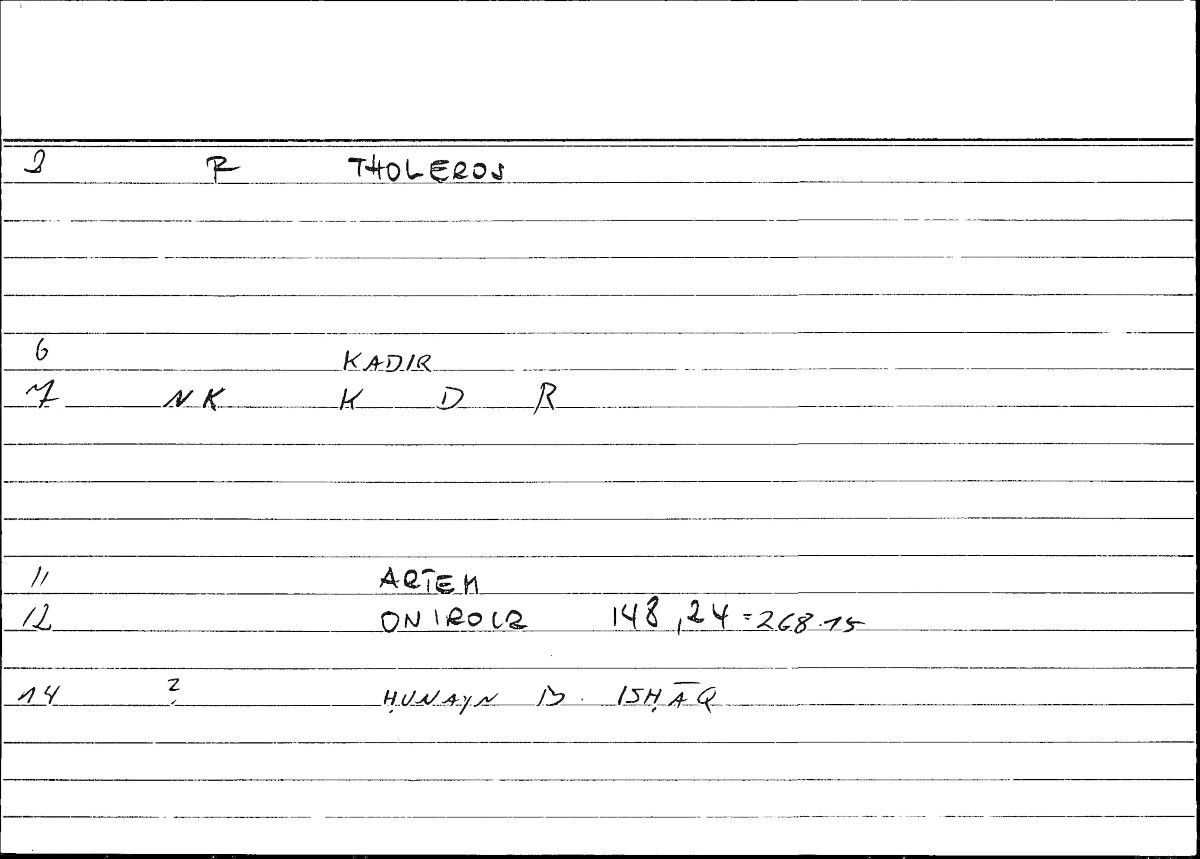 3 R THOLEROS
6 KADIR
7 NK K D R
11 ARTEM
12 ONIROCR 148,24=268.15
14 ? ḤUNAYN B. ISḤĀQ